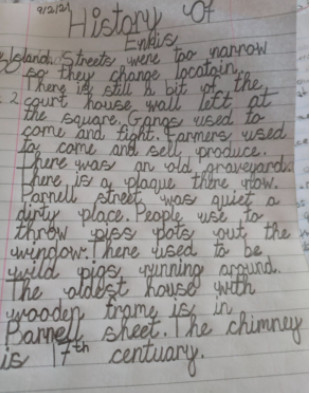 9/2/21 History Of
Enkis
Island. Streets were too narrow
so they change locatoin.
There is still a bit of the
2 court house wall left at
the square. Gangs used to
come and fight. Farmers used
to come and sell produce.
There was an old graveyard.
There is a plaque there now.
Parnell street was quiet a
dirty place. People use to
throw piss pots out the
window. There used to be
wild pigs running around.
The oldest house with
wooden frame is in
Parnell sheet. The chimney
is 17th centuary.